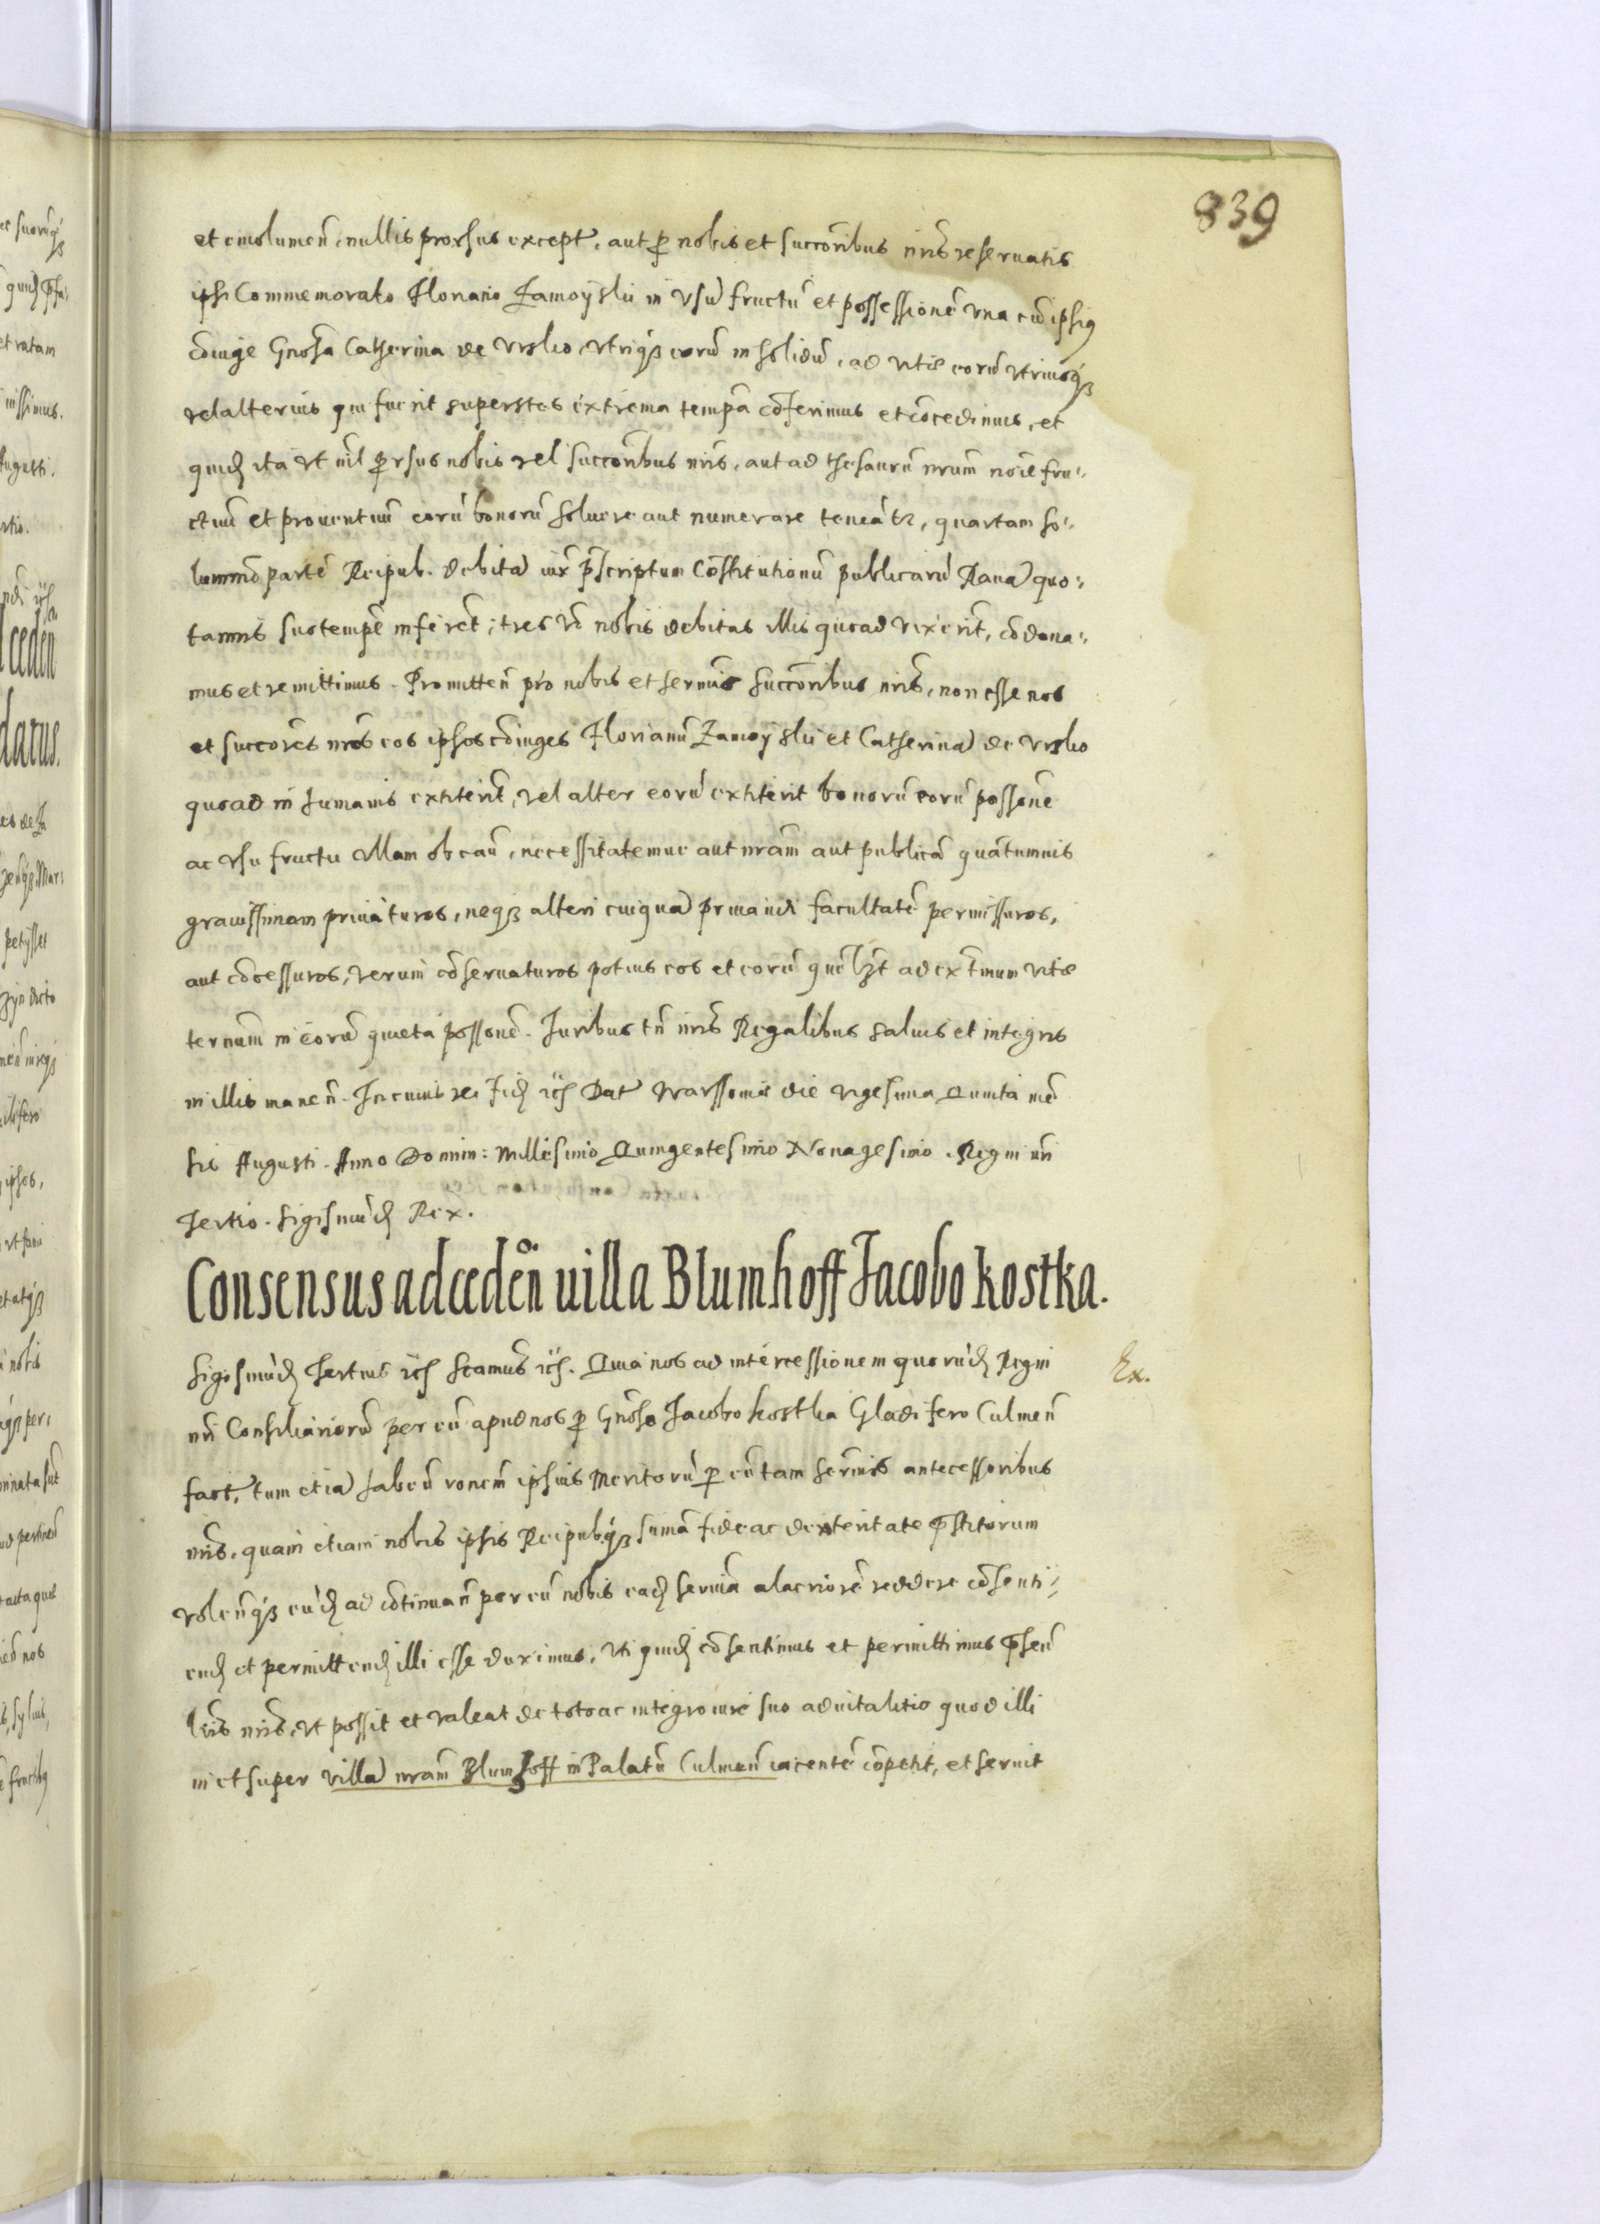 839
et emolumen̄, nullis prorsus except, aut p nobis et succorībus nrīs reseruatis
ipsi Commemorato Floriano Zamoyskii in vsū fructū et possessionē vna cū ipsiꝰ
cōiuge Gnōsa Catherina de Vrsko, vtriqꝫ eorū in solidū, ad vitæ eorū vtriusqꝫ
vel alterius qui fuerit superstes extrema tempā cōferimus et cōcedimus, et
quidꝫ ita vt nīl ꝓrsus nobis vel succorībus nrīs, aut ad thesaurū nrūm noīe fru-
ctuū et prouentuū eorū bonorū soluere aut numerare teneātr, quartam so-
lummō partē Reipub. debitā iux prȩscriptum Cōstitutionū publicarū Rauā quo-
tannis suo tempē inferēt; tres vō nobis debitas illis quoad vixerīt, cōdona-
mus et remittimus. Promitten̄ pro nobis et sernīs succorībus nrīs, non esse nos
et succorēs nrōs eos ipsos cōiuges Florianū Zamoyskii et Catherinā de Vrsko
quoad in humanis extiterīt, vel alter eorū extiterit bonorū eorū possōne
ac vsu fructu vllam ob cau͞, necessitatemue aut nrām aut publicā quātumuis
grauissimam priuāturos, neqꝫ alteri cuiquā priuandi facultatē permissuros,
aut cōcessuros, verum cōseruaturos potius eos et eorū quēlꝫt ad extm̄um vitæ
ternum in eorū quieta possonē. Iuribus tn̄ nrīs Regalibus saluis et integris
in illis manen̄. In cuius rei fidꝫ ꝛcꝫ Dat Warssouiæ die vigesima Quinta mē
sis Augusti. Anno Domini: Millesimo Quingentesimo Nonagesimo. Regni nrī
Tertio. Sigismūdꝫ Rex.
Consensus ad ceden̄ uilla Blumhoff Jacobo Kostka.
Sigismūdꝫ Tertius ꝛcꝫ Scamus̄ ꝛcꝫ. Quia nos ad intercessionem quorūdꝫ Regni
nrī Consiliariorū per eū apud nos p Gnōso Jacobo Kostka Gladifero Culmen̄
fact, tum etiā haben̄ ronem̄ ipsius meritorū p eū tam sernīs antecessoribus
nrīs, quam etiam nobis ipsis Reipubqꝫ sumā fide ac dexteritate p̄stitorum
volen̄qꝫ eūdꝫ ad cōtinuan̄ per eū nobis eadꝫ seruiā alacriorē reddere cōsenti-
endꝫ et permittendꝫ illi esse duximus, vti quidꝫ cōsentimus et permittimus p̄sen̄
lrīs nrīs, vt possit et valeat de toto ac integro iure suo aduitalitio quod illi
in et super villā nrām Blumhoff in Palatū Culmen̄ iacentē cōpetit, et seruit
Ex.